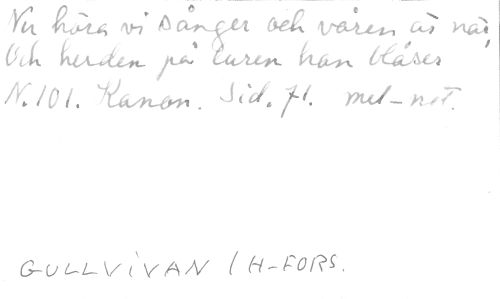 Nu höra vi sånger och våren är när,
Och herden på luren han blåser
N. 101. Kanon. Sid. 71. mel-not.
GULLVIVAN / H-FORS.